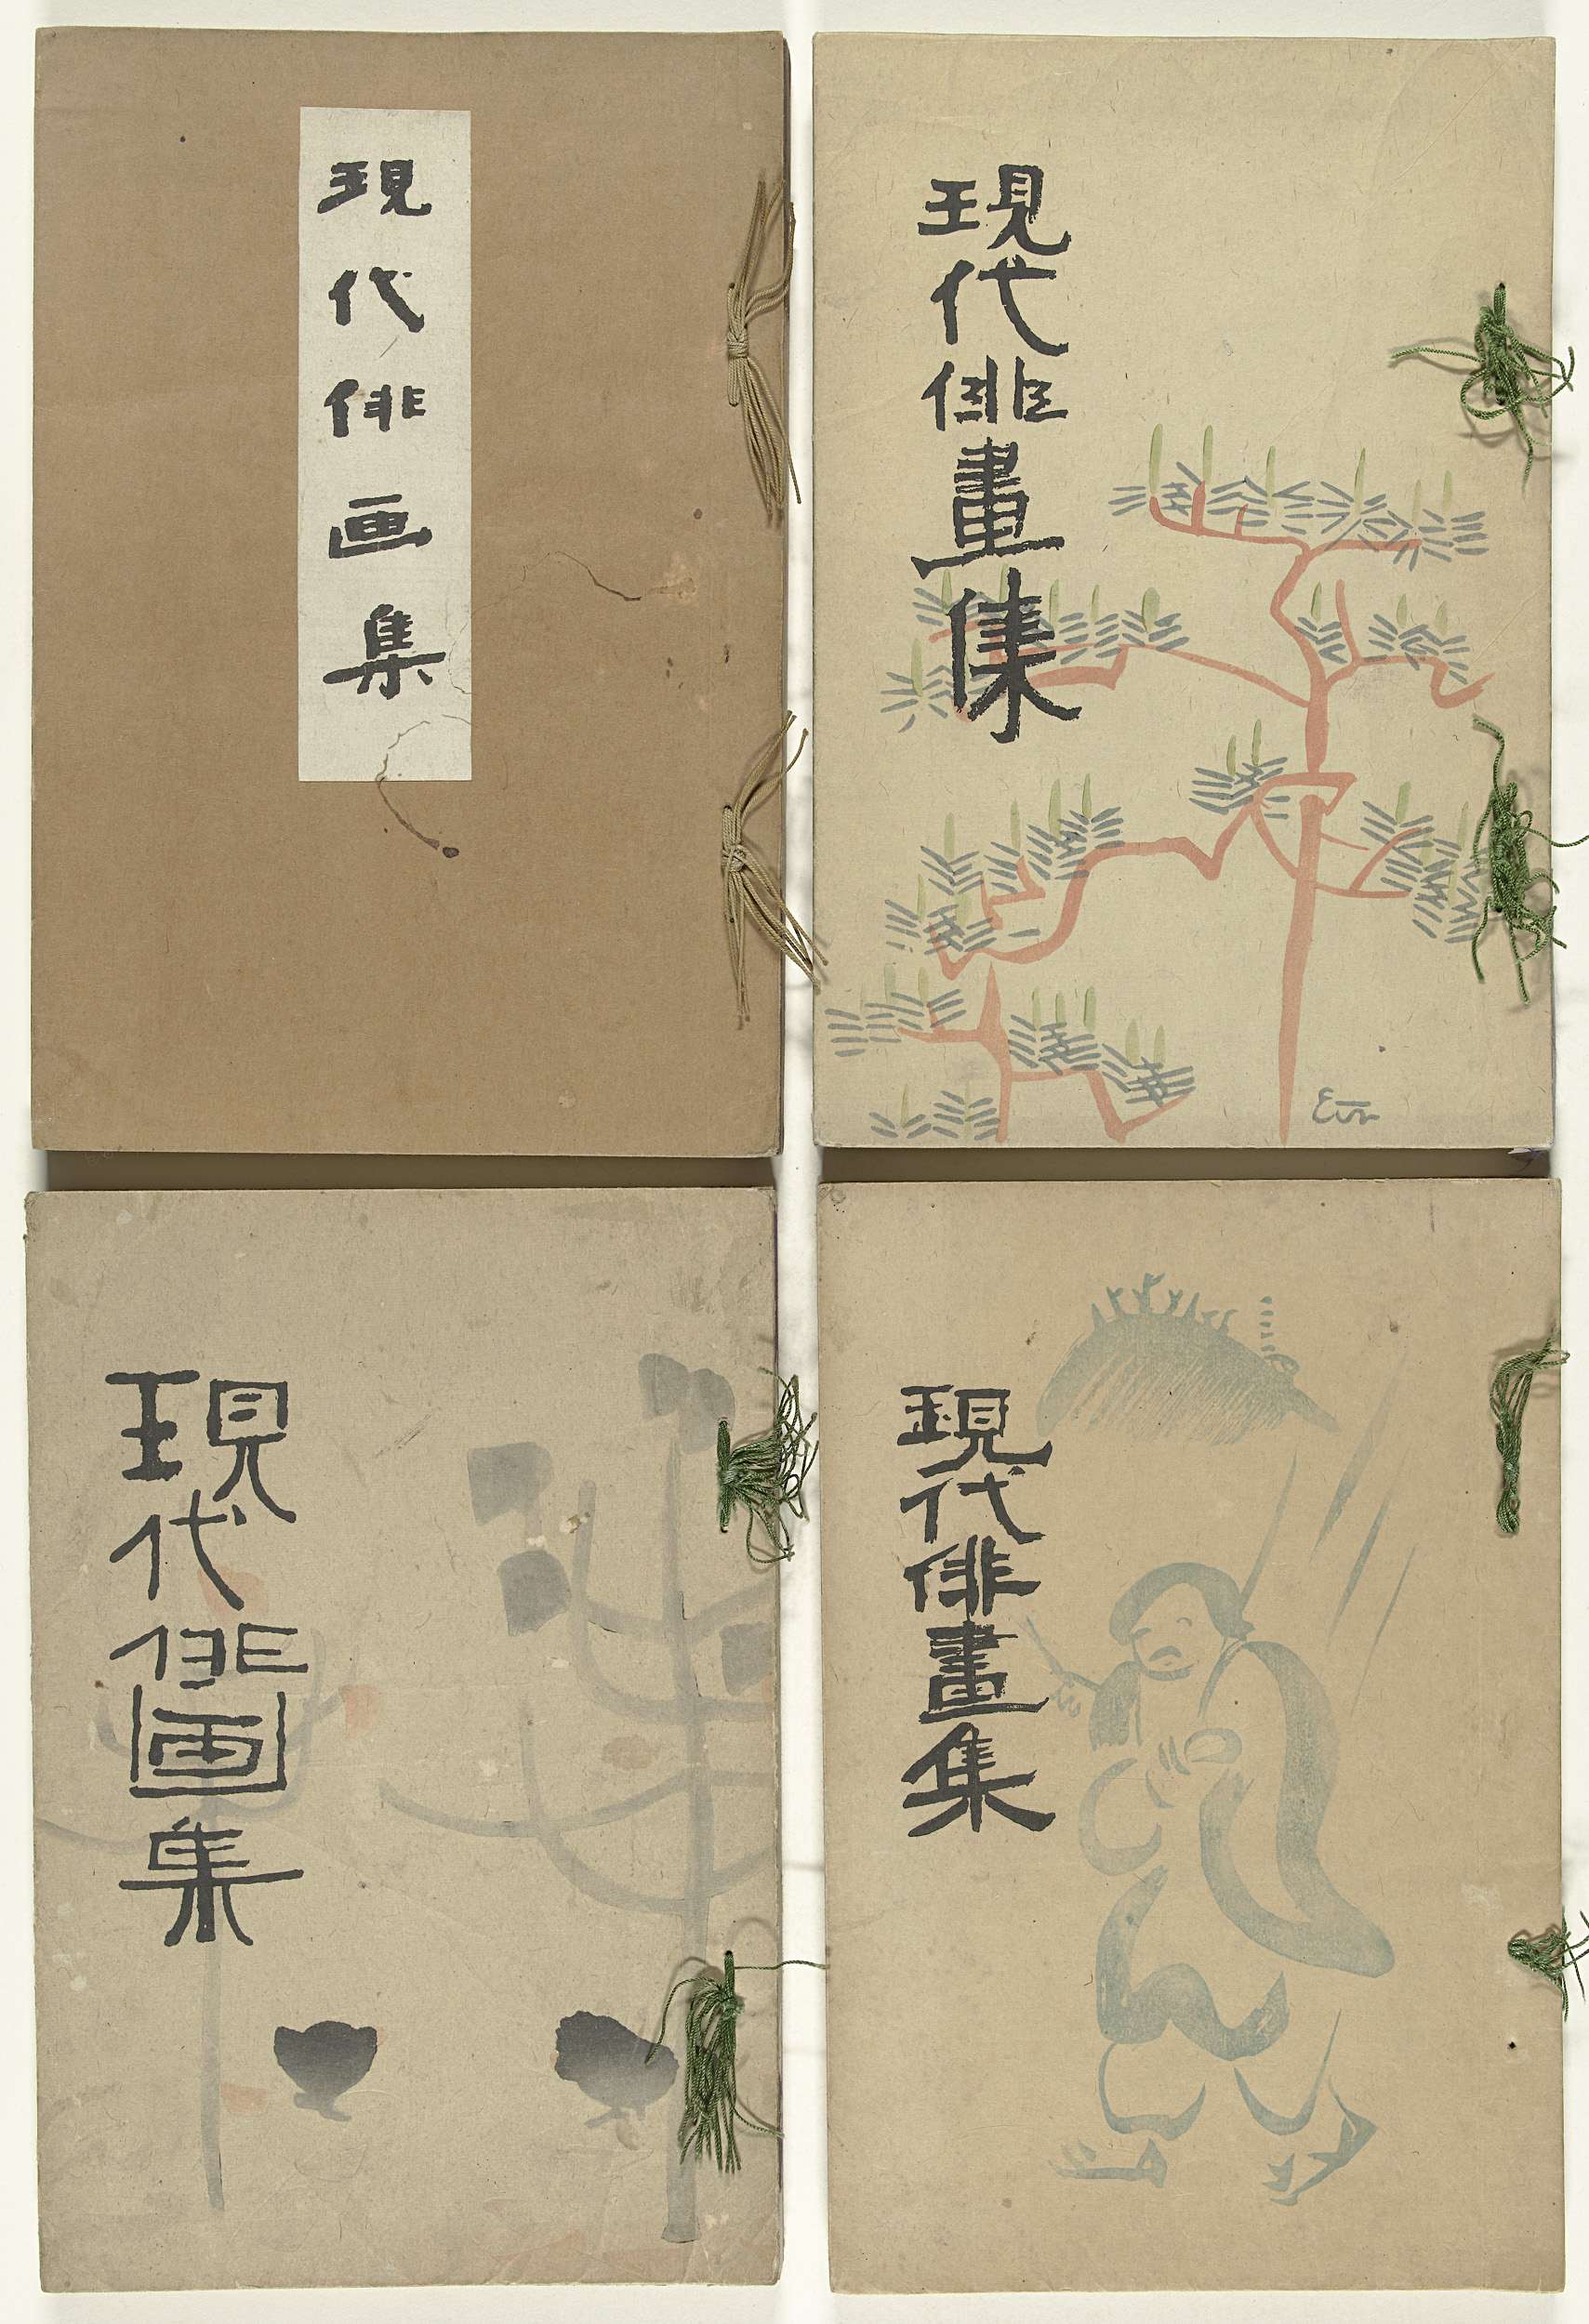 現代俳画集
現代俳畫集
現代俳圖集
現代俳畫集